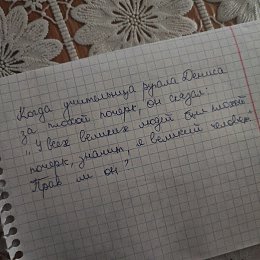 Когда учительница ругала Дениса
за плохой почерк, он сказал:
"У всех великих людей был плохой
почерк, значит, я великий человек.
Прав ли он?